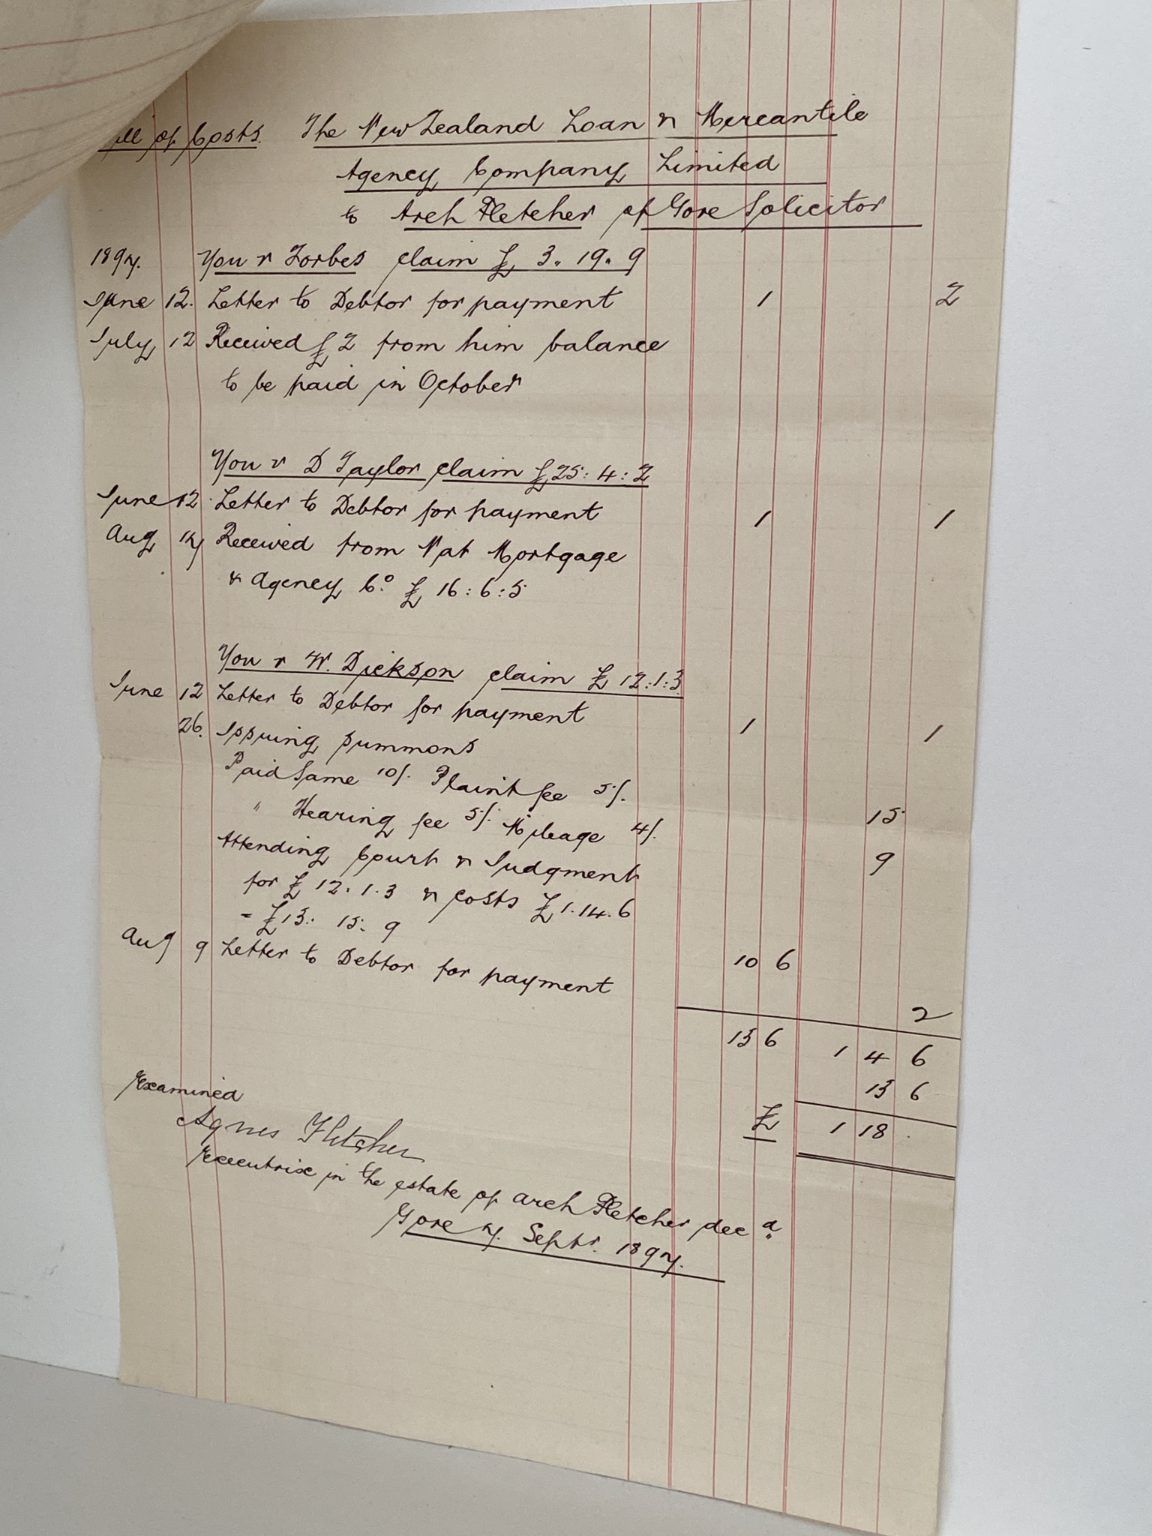 of Costs. The New Zealand Loan & Mercantile
Agency Company Limited
to Arch Fletcher of Gore Solicitor
1897. You v Forbes claim £ 3. 19. 9
June 12. Letter to Debtor for payment 1 2
July 12 Received £2 from him balance
to be paid in October
You v D Taylor claim £25:4:2
June 12. Letter to Debtor for payment 1 1
Aug 17 Received from Nat Mortgage
& Agency Co £ 16:6:5
You v W. Dickson claim £ 12.1.3
June 12 Letter to Debtor for payment 1 1
26. Issuing summons
Paid same 10/. Plaint fee 5/. 15
" Hearing fee 5/. Mileage 4/. 9
Attending Court & Judgment
for £ 12.1.3 & costs £1.14.6
= £13. 15. 9 10 6
Aug 9 Letter to Debtor for payment 2
13 6 1 4 6
13 6
£ 1 18 .
Examined
Agnes Fletcher
Executrix in the estate of Arch Fletcher decd
Gore 7. Septr. 1897.